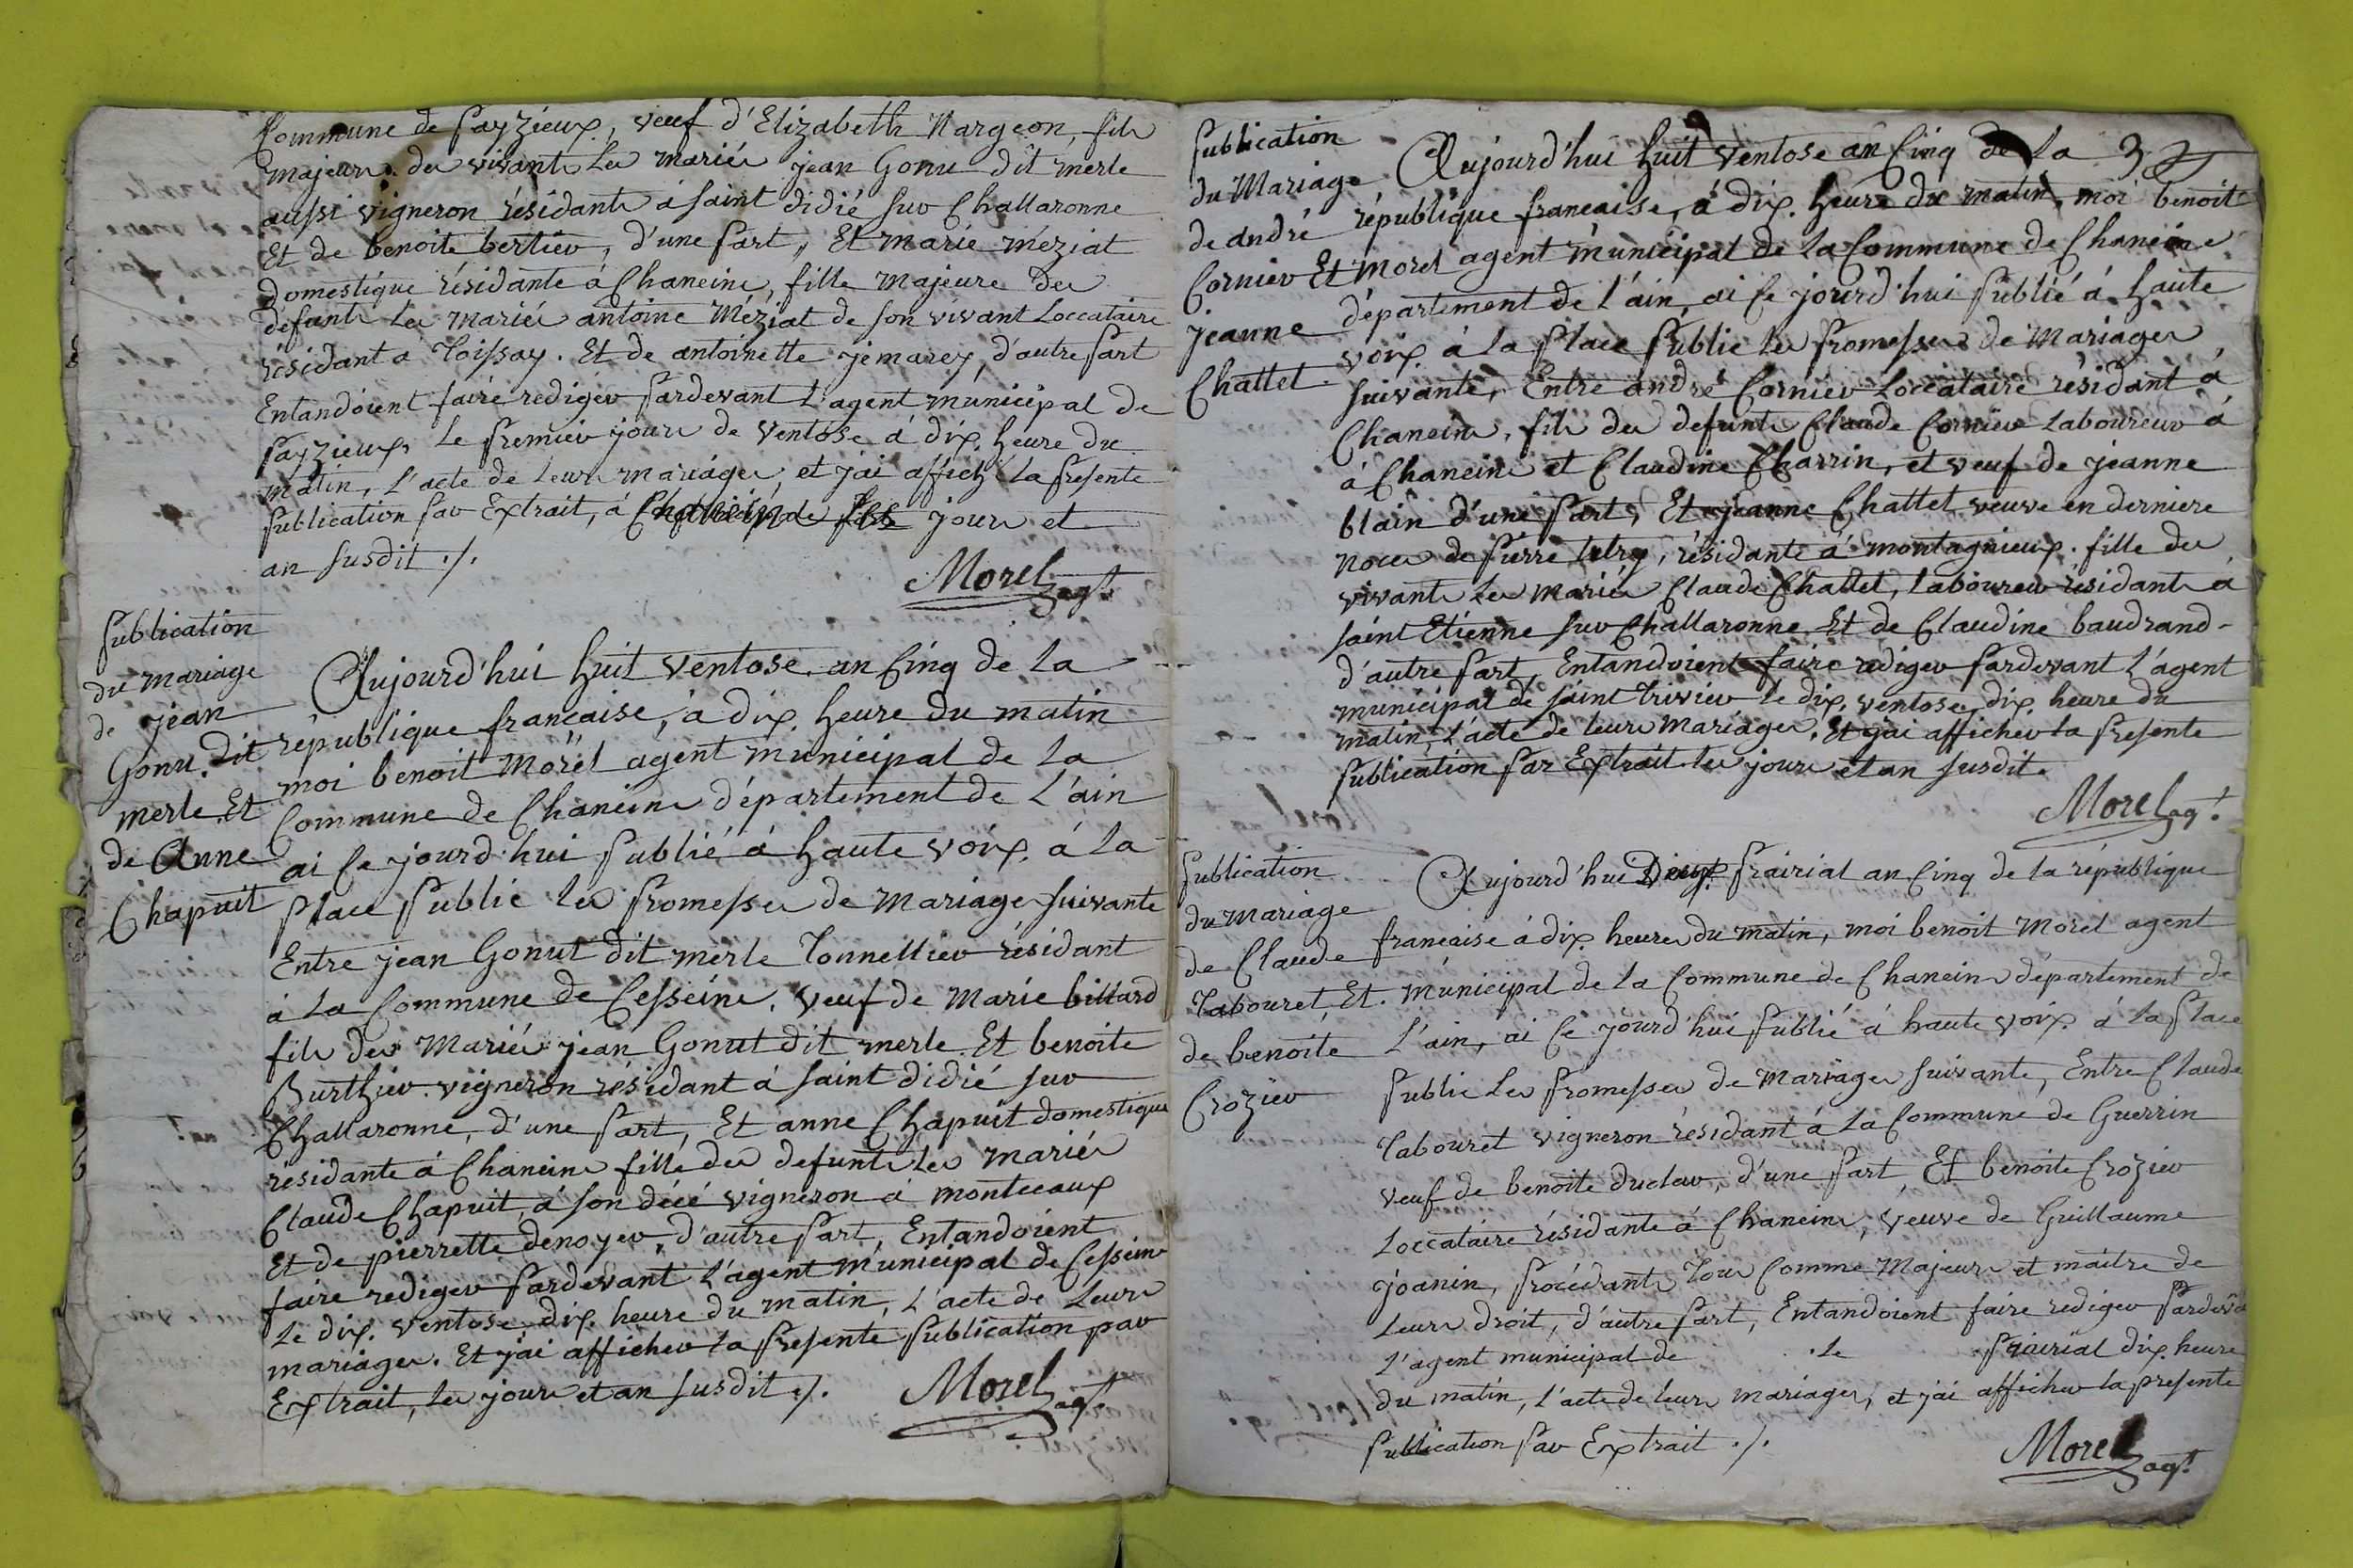 Commune de payzieux, veuf d'Elizabeth Nargeon, fils
majeurs des vivants les mariés jean Gonu dit merle
aussi vigneron résidants á saint didié sur Challaronne
Et de benoite bertier, d'une part, Et marie méziat
domestique résidante á Chaneins, fille majeure des
defunts les mariés antoine Méziat de son vivant Loccataire
résidant á Toissay. Et de antoinette jemarey, d'autre part
Entandoient faire rediger pardevant L'agent municipal de
payzieux, le premier jours de ventose á dix heure du
matin, L'acte de leurs mariages, et j'ai affiché la presente
publication par Extrait, á Chaneins les jours et
an susdit ./.
Morel agt.
publication
du mariage
de jean
Gonu dit
merle Et
de Anne
Chapuit
Aujourd'hui huit ventose an Cinq de la
république francaise, á dix heure du matin
moi benoit Morel agent municipal de la
Commune de Chaneins département de L'ain
ai Ce jourd'hui publié á haute voix á la
place public les promesses de Mariages suivante
Entre jean Gonut dit merle Tonnellier résidant
á la Commune de Cesseins, veuf de Marie billard
fils des Mariés jean Gonut dit merle Et benoite
Burthier vigneron résidant á saint didié sur
Challaronne, d'une part, Et anne Chapuit domestique
residante á Chaneins fille des defunts les mariés
Claude Chapuit, á son décé vigneron á montceaux
Et de pierrette denoyer, d'autre part, Entandoient
faire rediger pardevant L'agent municipal de Cesseins
Le dix ventose dix heure du matin, L'acte de Leurs
mariages. Et j'ai afficher la presente publication par
Extrait, les jours et an susdit ./.
Morel agt.
publication
du Mariage
de andré
Cornier Et
jeanne
Chattel
3
Aujourd'hui huit ventose an Cinq de la
république francaise, á dix heure du matin, moi benoit
Morel agent municipal de la Commune de Chaneins
département de L'ain, ai Ce jourd'hui publié á haute
voix á la place public les promesses de Mariages
suivante, Entre andré Cornier Loccataire résidant á
Chaneins, fils des defunts Claude Cornier Laboureur á
á Chaneins et Claudine Charrin, et veuf de jeanne
blain d'une part, Et jeanne Chattel veuve en derniere
noces de pierre, résidante á montagnieux. fille des
vivants les mariés Claude Chattel, Laboureur résidants á
saint Etienne sur Challaronne Et de Claudine baudrand
d'autre part, Entandoient faire rediger pardevant L'agent
municipal de saint Trivier le dix ventose, dix heure du
matin, L'acte de leurs Mariages. Et j'ai afficher la presente
publication par Extrait les jours et an susdit.
Morel agt.
publication
du Mariage
de Claude
Tabouret, Et
de benoite
Crozier
Aujourd'hui Deux prairial an Cinq de la république
francaise á dix heures du matin, moi benoit Morel agent
municipal de la Commune de Chaneins département de
L'ain, ai Ce jourd'hui publié á haute voix á la place
public les promesses de Mariages suivante, Entre Claude
Tabouret vigneron résidant á la Commune de Guerrin
veuf de benoite duclav, d'une part, Et benoite Crozier
Loccataire résidante á Chaneins, veuve de Guillaume
joanin, procédants Tous Comme Majeurs et maitre de
Leurs droit, d'autre part, Entandoient faire rediger pardeva
L'agent municipal de le prairial dix heure
du matin, L'acte de leurs mariages, et j'ai afficher la presente
publication par Extrait ./.
Morel agt.